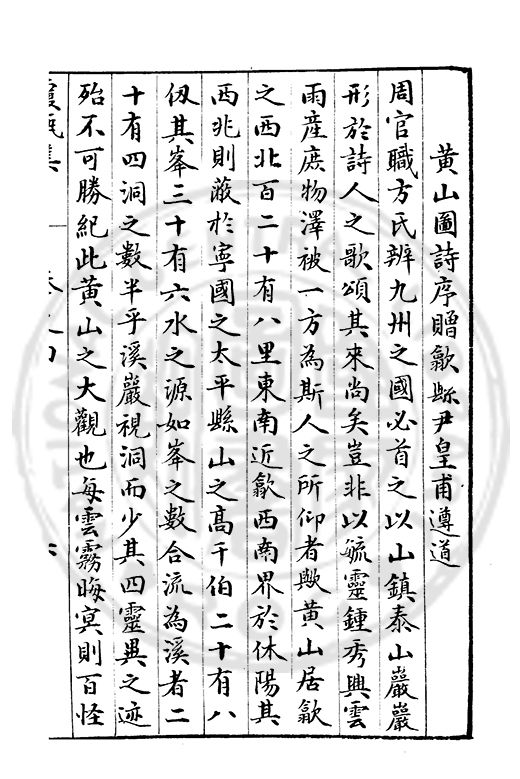 黄山圖詩序贈歙縣尹皇甫遵道
周官職方氏辨九州之國必首之以山鎮泰山巖巖
形於詩人之歌頌其來尚矣豈非以毓靈鍾秀興雲
雨産庶物澤被一方為斯人之所仰者歟黄山居歙
之西北百二十有八里東南近歙西南界於休陽其
西兆則蔽於寧國之太平縣山之髙千伯二十有八
仭其峯三十有六水之源如峯之數合流為溪者二
十有四洞之數半乎溪巖視洞而少其四靈異之迹
殆不可勝紀此黄山之大觀也每雲霧晦冥則百怪